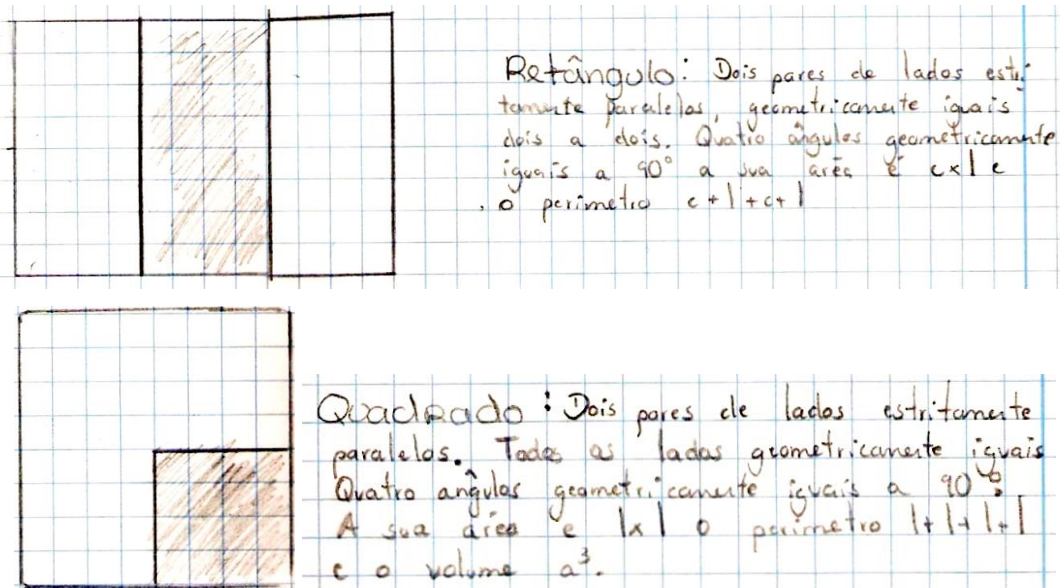 Retângulo: Dois pares de lados estri-
tamente paralelos, geometricamente iguais
dois a dois. Quatro ângulos geometricamente
iguais a 90° a sua área é c×l e
o perimetro c+l+c+l
Quadrado: Dois pares de lados estritamente
paralelos. Todos os lados geometricamente iguais
Quatro angûlos geometricamente iguais a 90°.
A sua área e l×l o perimetro l+l+l+l
e o volume a³.